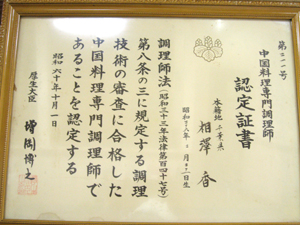 中国料理専門調理師
認定証書
本籍地 千葉県
相澤 香
調理師法(昭和三十三年法律第百四十七号)
第八条の三に規定する調理
技術の審査に合格した
中国料理専門調理師で
あることを認定する
昭和六十年十月一日
厚生大臣
増岡博之